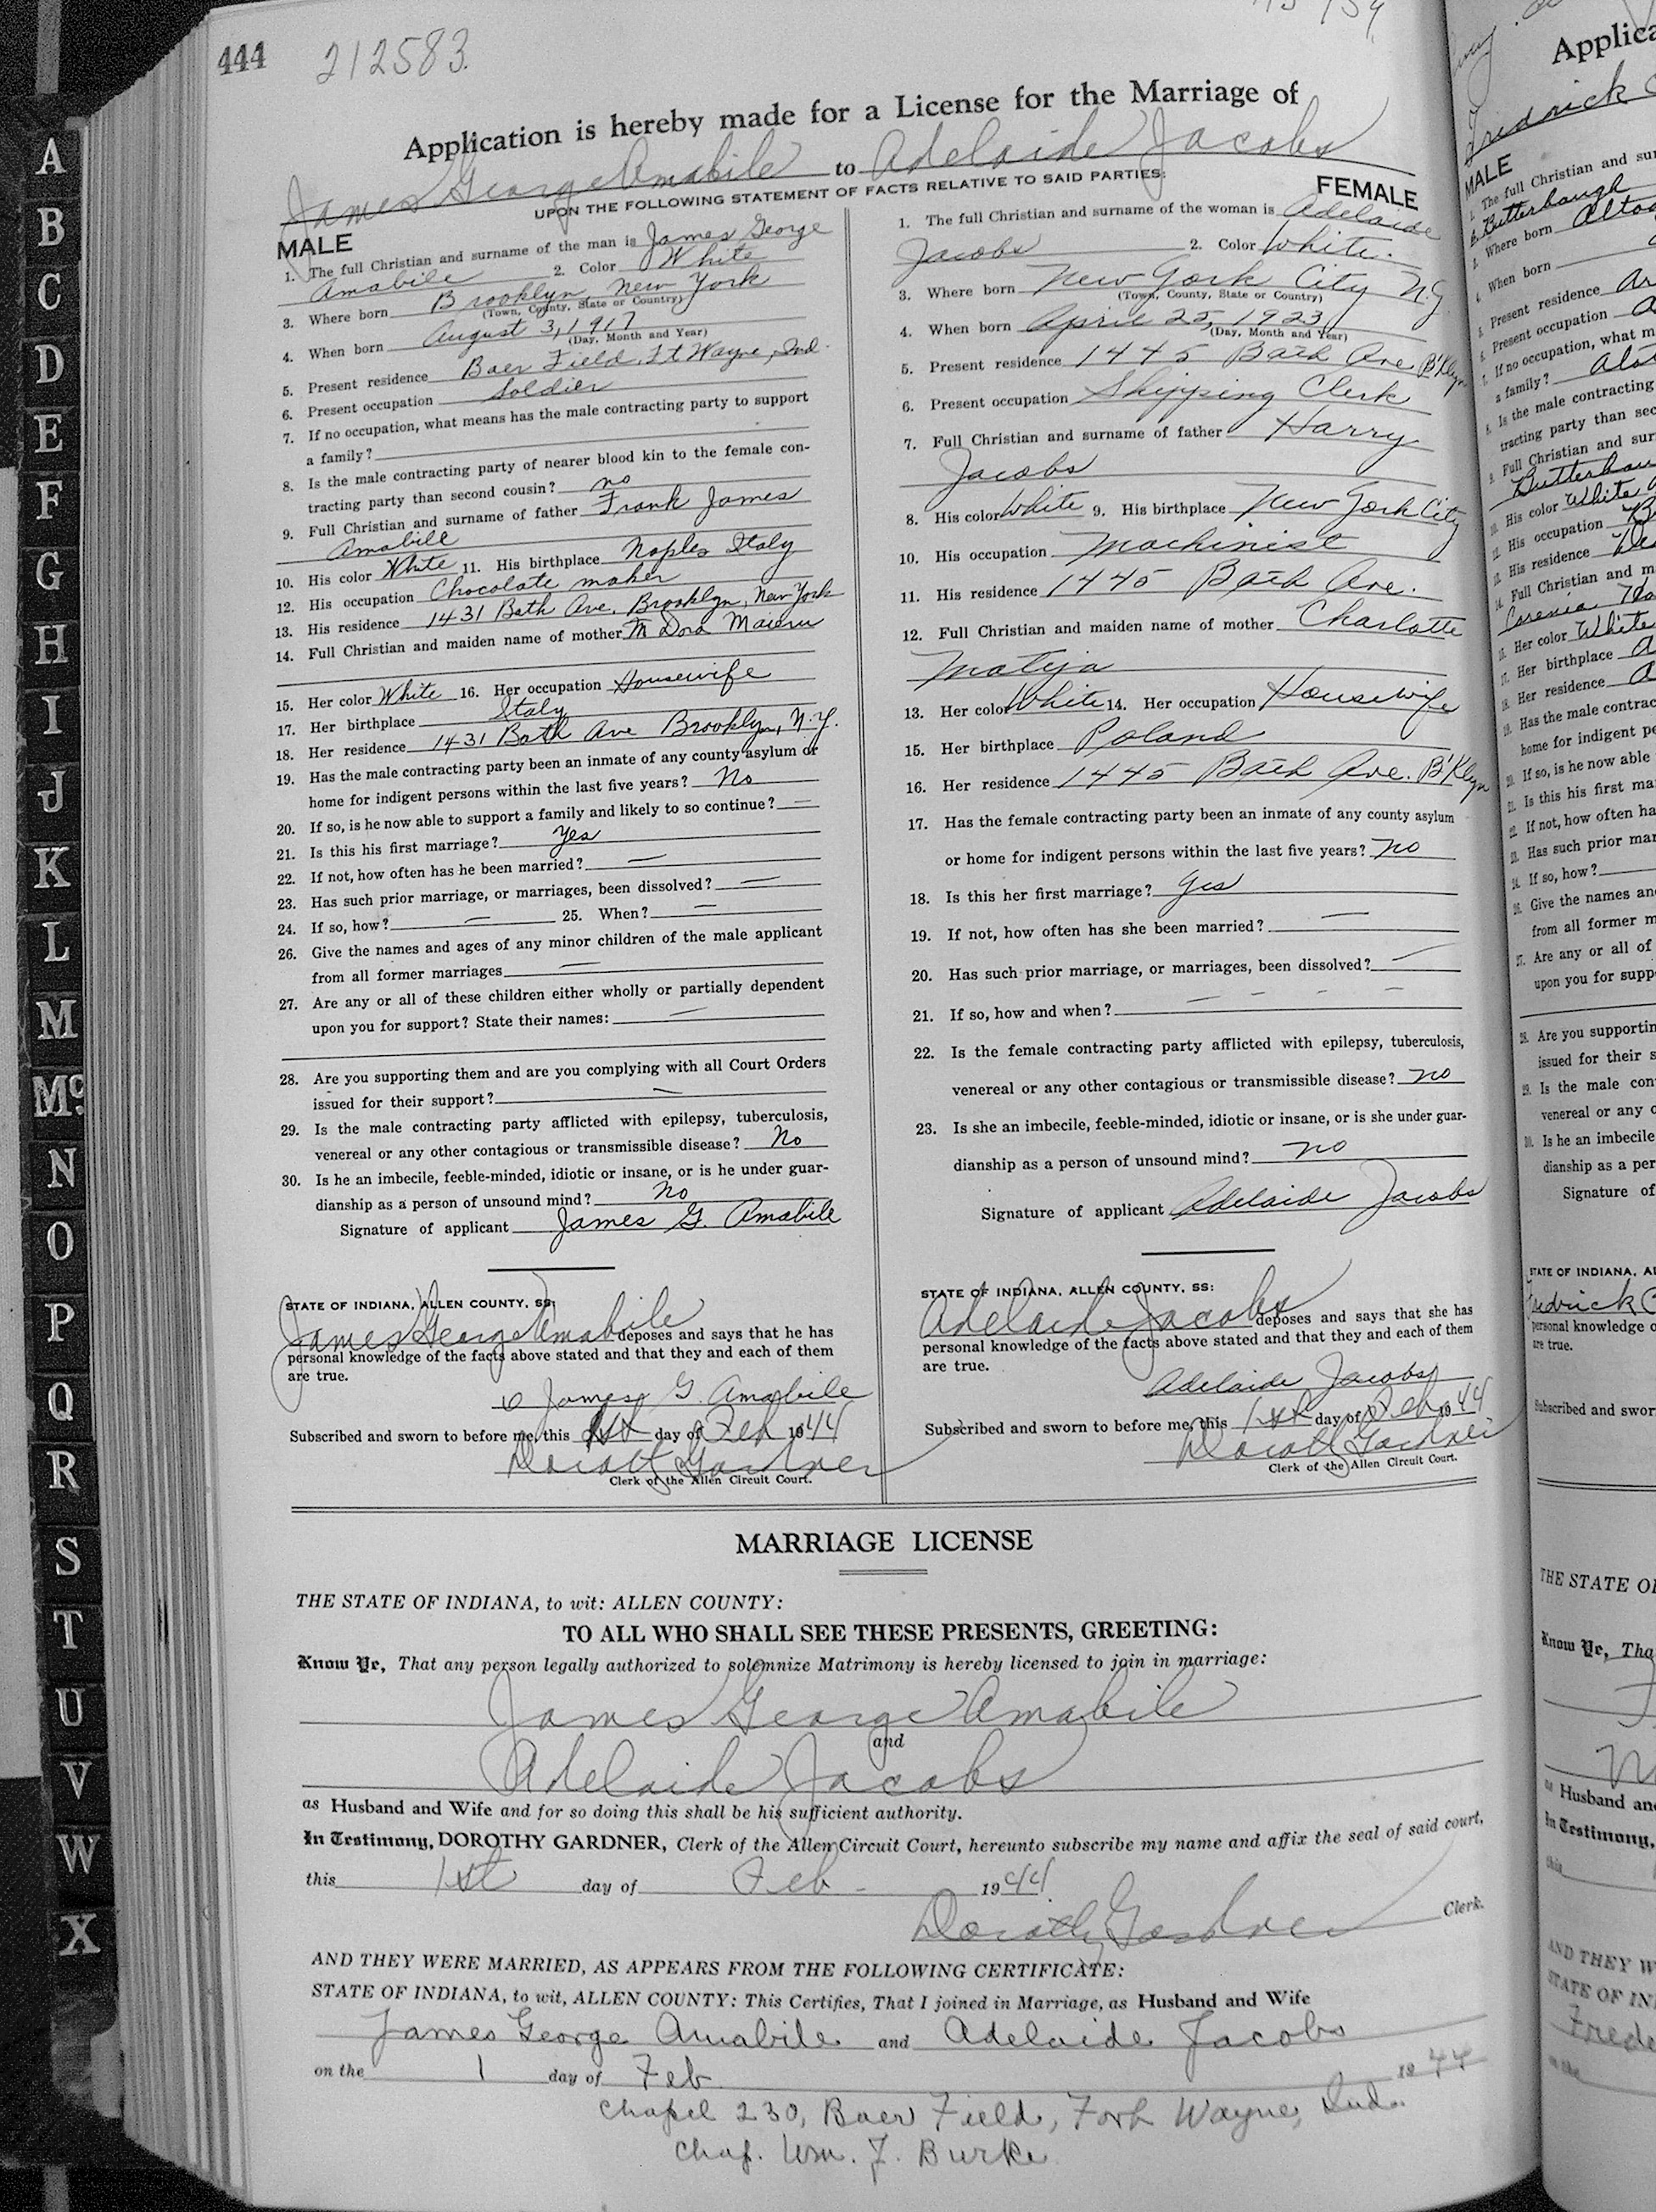 444 212583.
Application is hereby made for a License for the Marriage of
James George Amabile to Adelaide Jacobs
UPON THE FOLLOWING STATEMENT OF FACTS RELATIVE TO SAID PARTIES:
MALE
1. The full Christian and surname of the man is James George
Amabile 2. Color White
3. Where born Brooklyn, New York
(Town, County, State or Country)
4. When born August 3, 1917
(Day, Month and Year)
5. Present residence Baer Field, Ft Wayne, Ind.
6. Present occupation Soldier
7. If no occupation, what means has the male contracting party to support
a family?
8. Is the male contracting party of nearer blood kin to the female con-
tracting party than second cousin? no
9. Full Christian and surname of father Frank James
Amabile
10. His color White 11. His birthplace Naples Italy
12. His occupation Chocolate maker
13. His residence 1431 Bath Ave. Brooklyn, New York
14. Full Christian and maiden name of mother Dora
15. Her color White 16. Her occupation Housewife
17. Her birthplace Italy
18. Her residence 1431 Bath Ave Brooklyn, N.Y.
19. Has the male contracting party been an inmate of any county asylum or
home for indigent persons within the last five years? No
20. If so, is he now able to support a family and likely to so continue? —
21. Is this his first marriage? Yes
22. If not, how often has he been married? —
23. Has such prior marriage, or marriages, been dissolved? —
24. If so, how? — 25. When? —
26. Give the names and ages of any minor children of the male applicant
from all former marriages —
27. Are any or all of these children either wholly or partially dependent
upon you for support? State their names: —
28. Are you supporting them and are you complying with all Court Orders
issued for their support? —
29. Is the male contracting party afflicted with epilepsy, tuberculosis,
venereal or any other contagious or transmissible disease? No
30. Is he an imbecile, feeble-minded, idiotic or insane, or is he under guar-
dianship as a person of unsound mind? No
Signature of applicant James G. Amabile
STATE OF INDIANA, ALLEN COUNTY, SS:
James George Amabile deposes and says that he has
personal knowledge of the facts above stated and that they and each of them
are true.
James G. Amabile
Subscribed and sworn to before me, this 1st day of Feb 1944
Dorothy Gardner
Clerk of the Allen Circuit Court.
FEMALE
1. The full Christian and surname of the woman is Adelaide
Jacobs 2. Color White.
3. Where born New York City N.Y.
(Town, County, State or Country)
4. When born April 25, 1923
(Day, Month and Year)
5. Present residence 1445 Bath Ave. B'Klyn
6. Present occupation Shipping Clerk
7. Full Christian and surname of father Harry
Jacobs
8. His color White 9. His birthplace New York City
10. His occupation Machinist
11. His residence 1445 Bath Ave.
12. Full Christian and maiden name of mother Charlotte
Matyja
13. Her color White 14. Her occupation Housewife
15. Her birthplace Poland
16. Her residence 1445 Bath Ave. B'Klyn
17. Has the female contracting party been an inmate of any county asylum
or home for indigent persons within the last five years? no
18. Is this her first marriage? Yes
19. If not, how often has she been married? —
20. Has such prior marriage, or marriages, been dissolved? —
21. If so, how and when? — — — —
22. Is the female contracting party afflicted with epilepsy, tuberculosis,
venereal or any other contagious or transmissible disease? no
23. Is she an imbecile, feeble-minded, idiotic or insane, or is she under guar-
dianship as a person of unsound mind? no
Signature of applicant Adelaide Jacobs
STATE OF INDIANA, ALLEN COUNTY, SS:
Adelaide Jacobs deposes and says that she has
personal knowledge of the facts above stated and that they and each of them
are true.
Adelaide Jacobs
Subscribed and sworn to before me, this 1st day of Feb 1944
Dorothy Gardner
Clerk of the Allen Circuit Court.
MARRIAGE LICENSE
THE STATE OF INDIANA, to wit: ALLEN COUNTY:
TO ALL WHO SHALL SEE THESE PRESENTS, GREETING:
Know Ye, That any person legally authorized to solemnize Matrimony is hereby licensed to join in marriage:
James George Amabile
and
Adelaide Jacobs
as Husband and Wife and for so doing this shall be his sufficient authority.
In Testimony, DOROTHY GARDNER, Clerk of the Allen Circuit Court, hereunto subscribe my name and affix the seal of said court,
this 1st day of Feb - 1944.
Dorothy Gardner Clerk.
AND THEY WERE MARRIED, AS APPEARS FROM THE FOLLOWING CERTIFICATE:
STATE OF INDIANA, to wit, ALLEN COUNTY: This Certifies, That I joined in Marriage, as Husband and Wife
James George Amabile and Adelaide Jacobs
on the 1 day of Feb 1944
Chapel 230, Baer Field, Fort Wayne, Ind.
Chap. Wm. F. Burke
A
B
C
D
E
F
G
H
I
J
K
L
M
Mc
N
O
P
Q
R
S
T
U
V
W
X